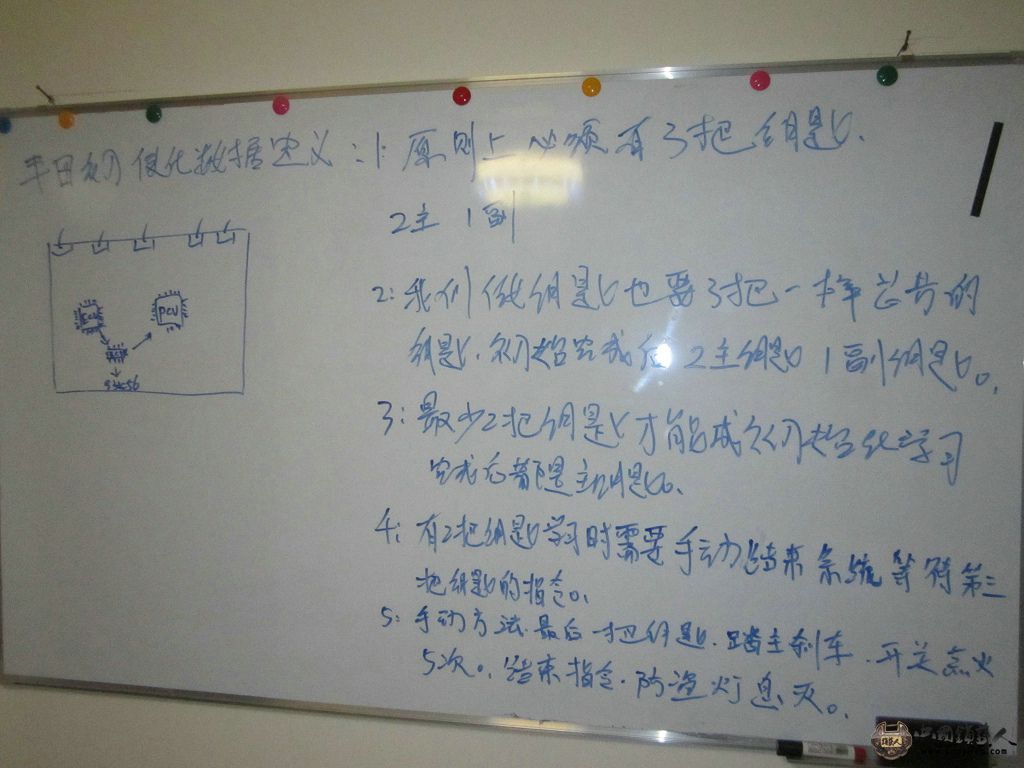 丰田初使化数据定义：1：原则上必须有3把钥匙。
2主 1副
2：我们做钥匙也要3把一样芯号的
钥匙。初始完成后2主钥匙1副钥匙。
3：最少2把钥匙才能成初始化学习
完成后都是主钥匙。
4：有2把钥匙学习时需要手动结束系统等待第三
把钥匙的指令。
5：手动方法最后一把钥匙。踏主刹车。开关点火
5次。结束指令。防盗灯息灭。
PCU